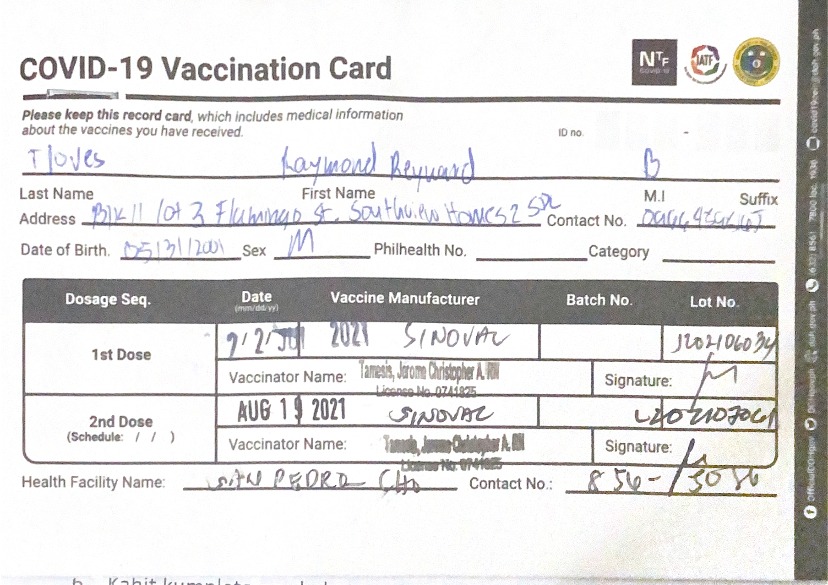 COVID-19 Vaccination Card
NTF
COVID-19
IATF
Please keep this record card, which includes medical information
about the vaccines you have received.
ID no.
Raymond Reynard B
Last Name First Name M.I Suffix
Address Blk 11 lot 3 Flamingo St. Southview Homes 2 Contact No.
Date of Birth. 05/31/2001 Sex M Philhealth No. Category
Dosage Seq. Date Vaccine Manufacturer Batch No. Lot No.
(mm/dd/yy)
1st Dose 2021 SINOVAC J202106034
Vaccinator Name: Tamesis, Jerome Christopher A. RN Signature:
License No. 0741825
2nd Dose AUG 19 2021 SINOVAC
(Schedule: / / )
Vaccinator Name: Tamesis, Jerome Christopher A. RN Signature:
License No. 0741825
Health Facility Name: SAN PEDRO CHO Contact No.: 856-
b. Kahit kumpleto